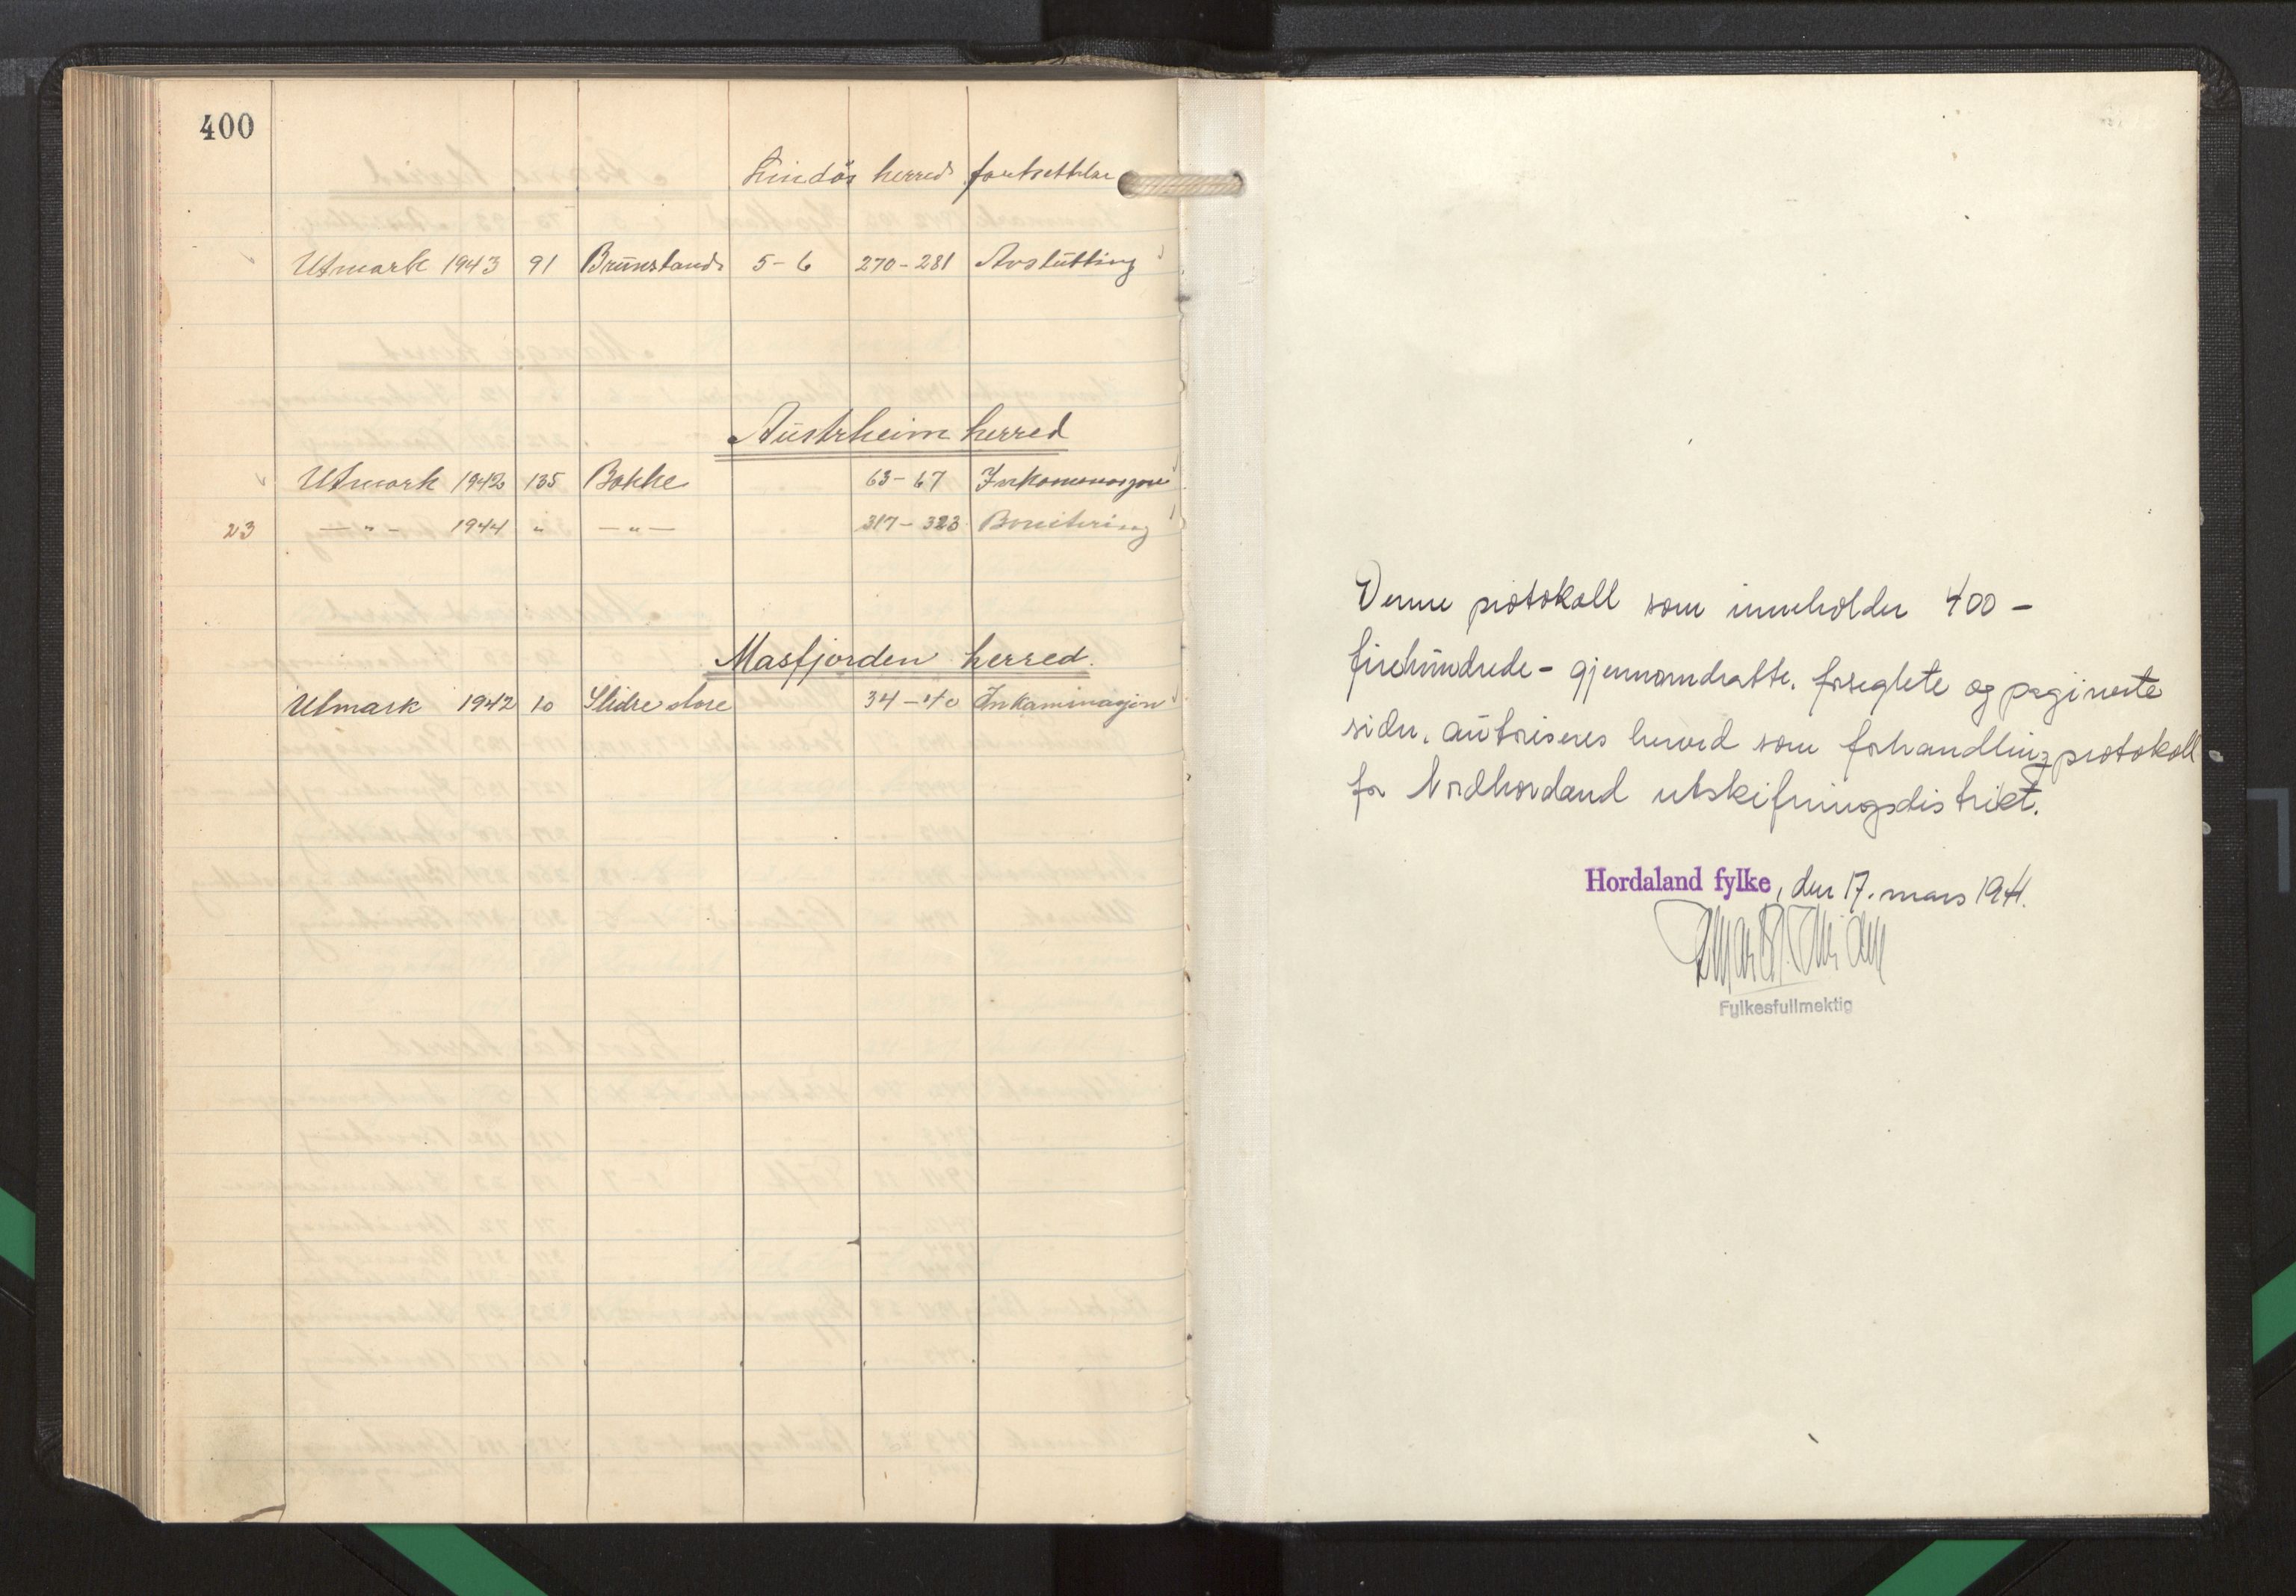 400
Lindås herred fortsettelse
Utmark 1943 91 Brunstands 5-6 270-281 Avslutting
Austrheim herred
Utmark 1942 135 Bakke 63-67 Inkaminasjon
23 —"— 1944 " —"— 317-323 Bonitering
Masfjorden herred.
Utmark 1942 10 Slidre store 34-40 Inkaminasjon
Denne protokoll som inneholder 400 -
firehundrede - gjennomdratte, forseglete og paginerte
sider, autoriseres herved som forhandlingsprotokoll
for Nordhordland utskiftningsdistrikt.
Hordaland fylke, den 17. mars 1941.
Fylkesfullmektig